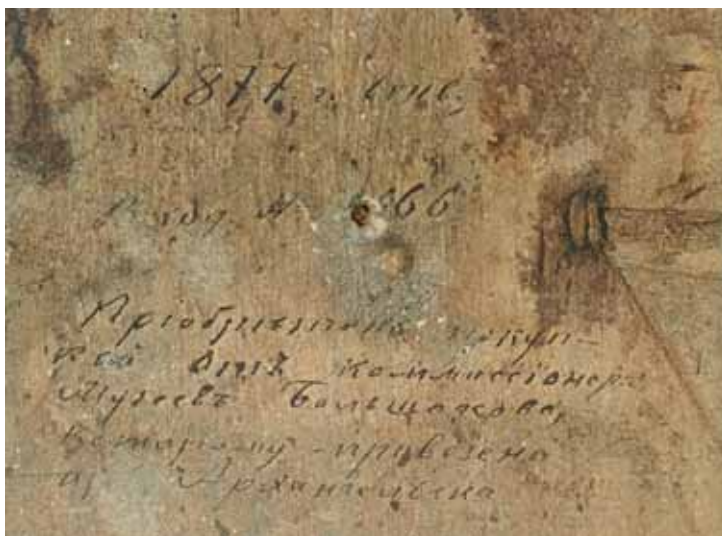 1877 г.
66
Пріобрѣтена покуп-
кой отъ коммиссіонера
Музеевъ Большакова,
которому привезена
из Архангельска